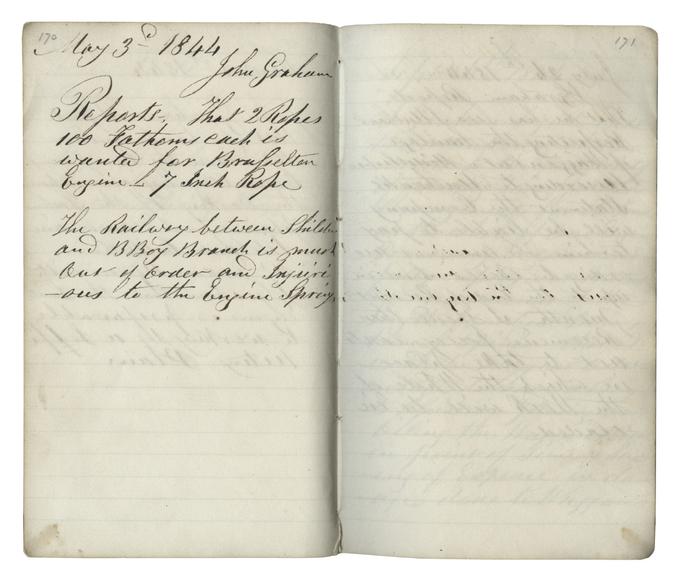 170
May 3d 1844
John Graham
Reports, That 2 Ropes
100 Fathoms each is
wanted for Brusselton
Engine 7 Inch Rope
The Railway between Shildn
and BBoy Branch is much
Out of order and Injuri
-ous to the Engine Springs
171